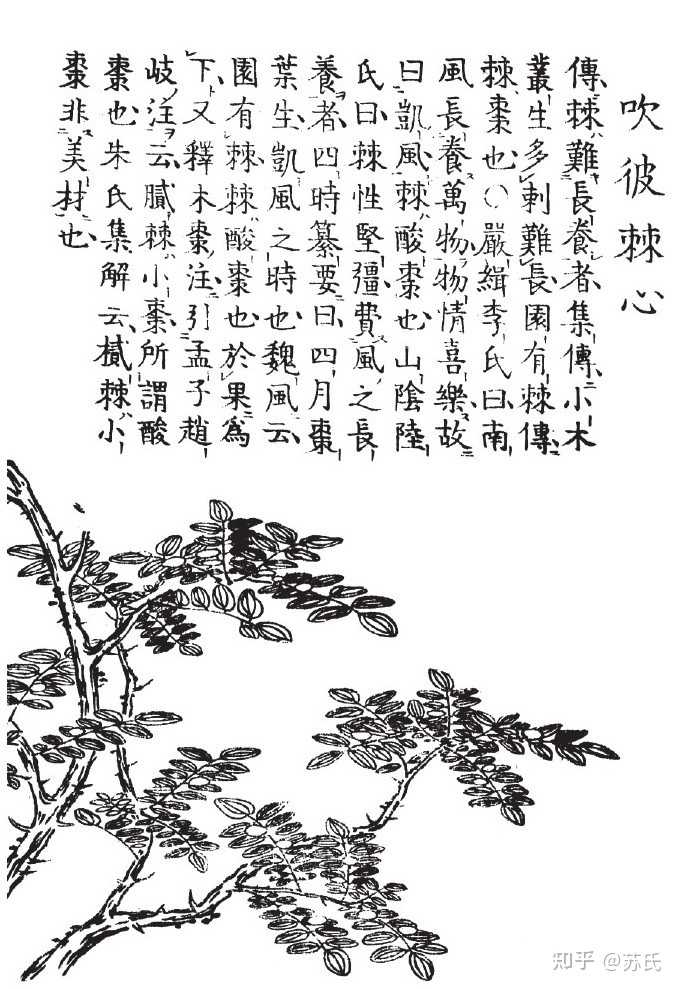 吹彼棘心
傳棘難長養者集傳小木
叢生多刺難長園有棘傳
棘棗也○嚴緝李氏曰南
風長養萬物物情喜樂故
曰凱風棘酸棗也山陰陸
氏曰棘性堅彊費風之長
養者四時纂要曰四月棗
葉生凱風之時也魏風云
園有棘棘酸棗也於果爲
下又釋木棗注引孟子趙
岐注云膩棘小棗所謂酸
棗也朱氏集解云樲棘小
棗非美材也
知乎 @苏氏